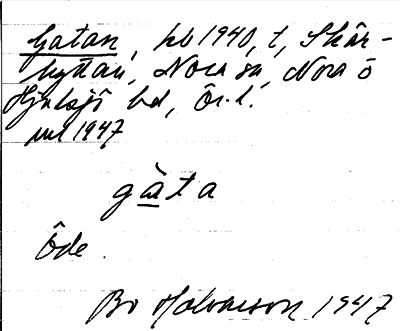 Gatan, hb 1940, t, Skär-
hyttan, Nora sn, Nora o
Hjulsjö bd, Ör. l.
1947
gàta
Öde.
Bo Halvarson 1947